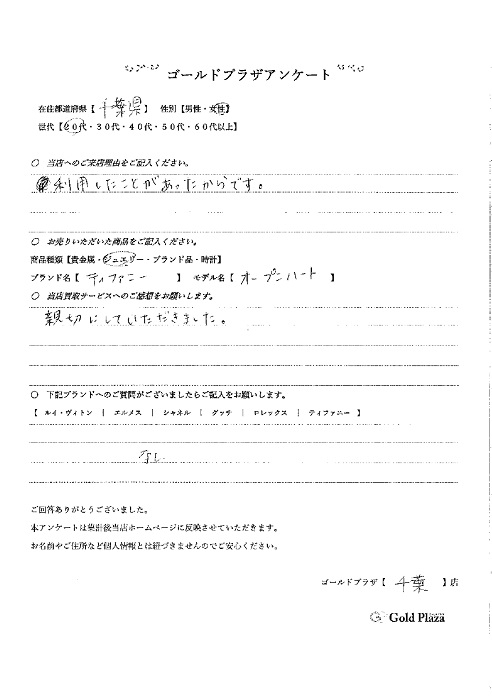 ゴールドプラザアンケート
在住都道府県【 千葉県 】 性別【男性・女性】
世代【20代・30代・40代・50代・60代以上】
○ 当店へのご来店理由をご記入ください。
利用したことがあったからです。
○ お売りいただいた商品をご記入ください。
商品種類【貴金属・ジュエリー・ブランド品・時計】
ブランド名【 ティファニー 】 モデル名【 オープンハート 】
○ 当店買取サービスへのご感想をお願いします。
親切にしていただきました。
○ 下記ブランドへのご質問がございましたらご記入をお願いします。
【 ルイ・ヴィトン | エルメス | シャネル | グッチ | ロレックス | ティファニー 】
なし
ご回答ありがとうございました。
本アンケートは集計後当店ホームページに反映させていただきます。
お名前やご住所など個人情報とは紐づきませんのでご安心ください。
ゴールドプラザ【 千葉 】店
Gold Plaza